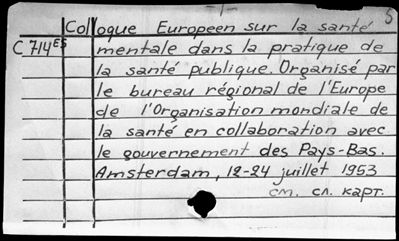 -1- 5
Colloque Europeen sur la santé
C 714 E5 mentale dans la pratique de
la santé publique. Organisé par
le bureau régional de l'Europe
de l'Organisation mondiale de
la santé en collaboration avec
le gouvernement des Pays-Bas.
Amsterdam, 12-24 juillet 1953
см. сл. карт.